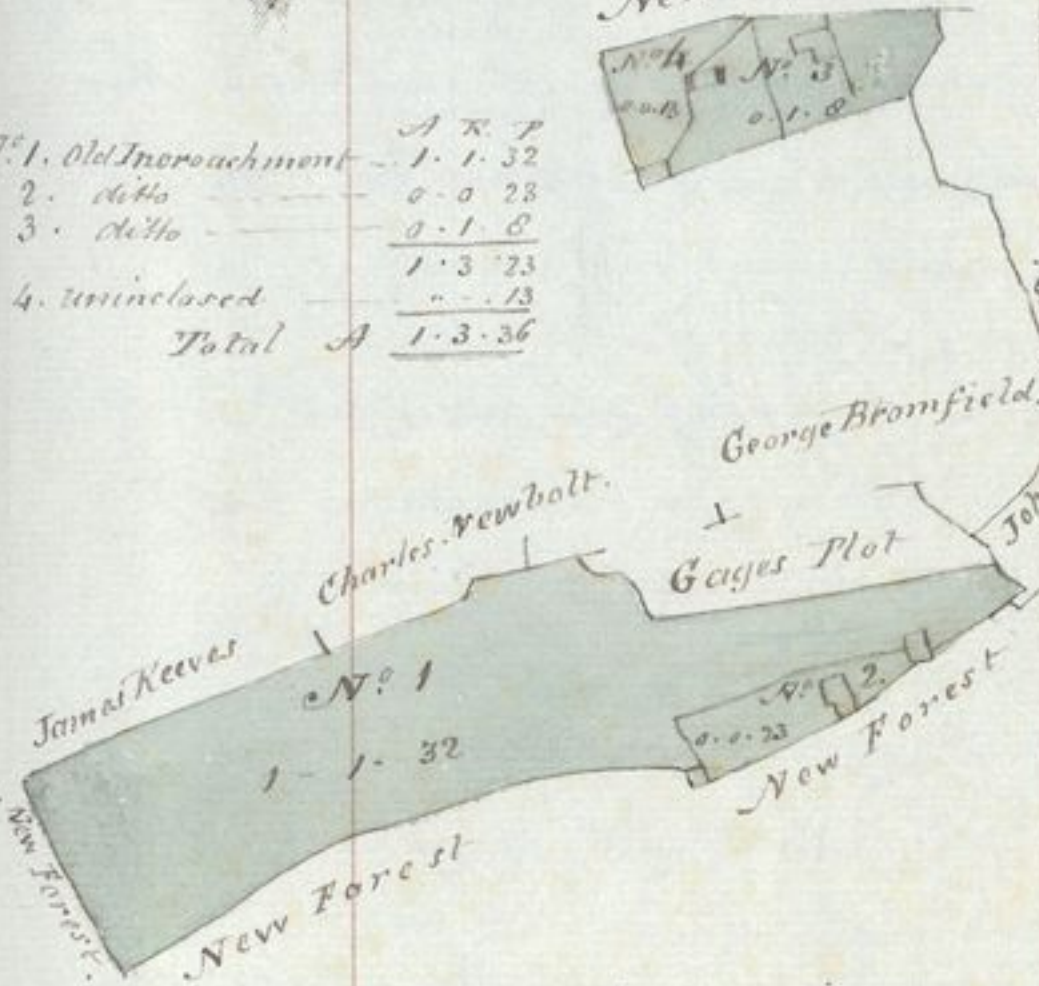 Ne
No 4
0.0.13
No 3
0.1.8
A R. P
No 1. Old Incroachment 1. 1. 32
2. ditto 0 - 0 23
3. ditto 0. 1. 8
1. 3. 23
4. uninclosed " - . 13
Total A 1. 3. 36
George Bromfield
Charles Newbolt.
Gages Plot
Joh
James Keeves
No. 1
1 - 1 - 32
No 2.
0-0-23
New Forest
New Forest
New Forest.